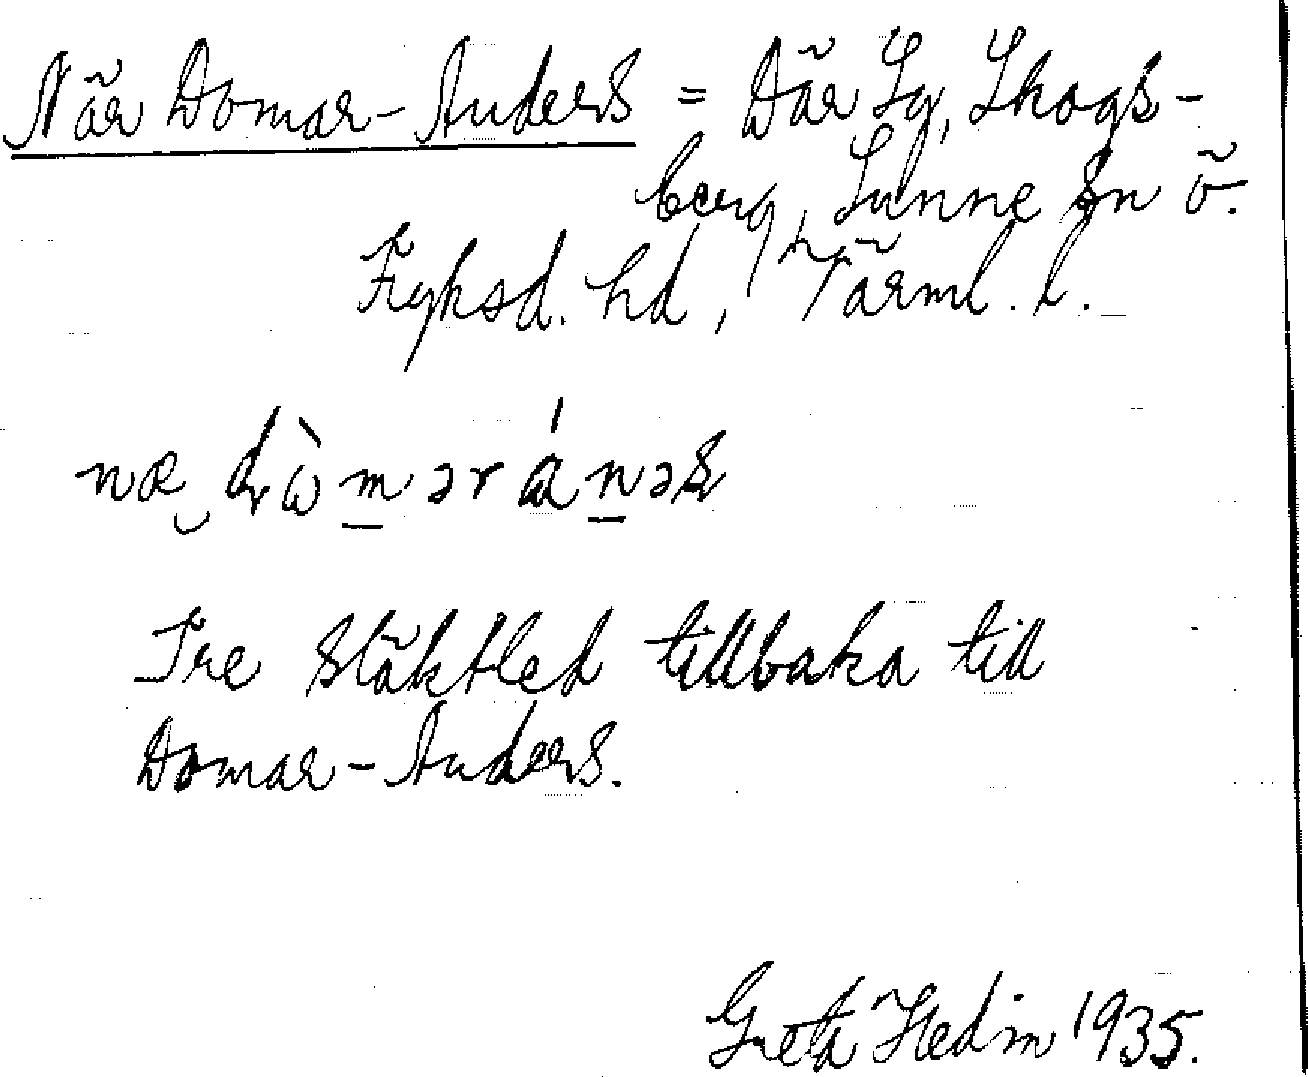 När Domar-Anders = Där Lg, Skogs-
berg, Sunne sn ö.
Fryksd. hd, Värml. l.
Tre släktled tillbaka till
Domar-Anders.
Greta Hedin 1935.